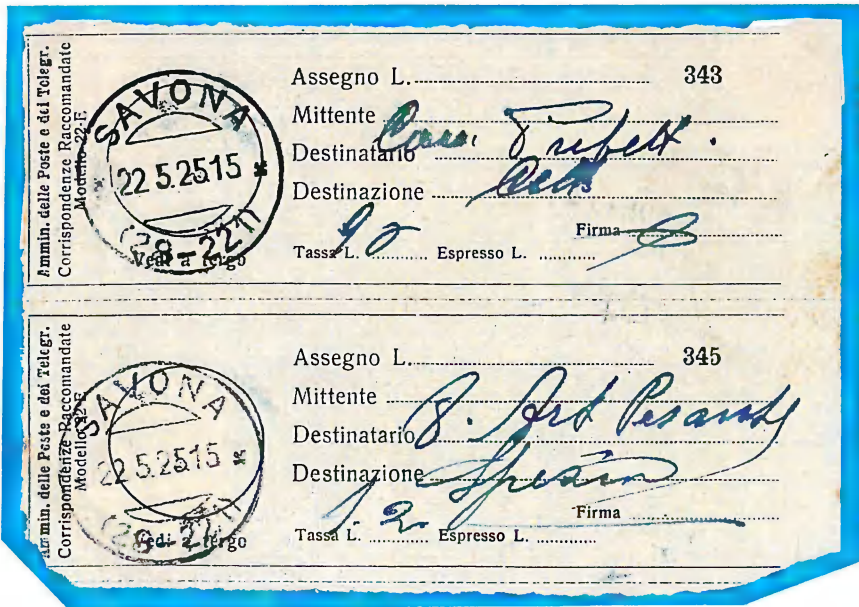 Ammin. delle Poste e dei Telegr.
Corrispondenze Raccomandate
Modello 22-E
SAVONA
22 5.25 15
(28-221)
Vedi a tergo
Assegno L. 343
Mittente
Destinatario Prefett.
Destinazione
Firma
Tassa L. Espresso L.
Ammin. delle Poste e dei Telegr.
Corrispondenze Raccomandate
Modello 22-E
SAVONA
22 5.25 15
(28-221)
Vedi a tergo
Assegno L. 345
Mittente
Destinatario 8. Art Pesante
Destinazione
Firma
Tassa L. 1.2 Espresso L.